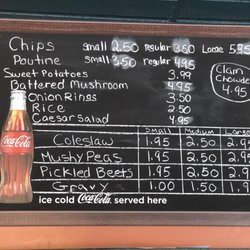 Chips small 2.50 regular 3.50 Large 5.95
Poutine small 3.50 regular 4.95
Sweet Potatoes 3.99
Battered Mushroom 4.95
Onion Rings 3.50
Rice 2.50
Caesar Salad 4.95
Clam
Chowder
4.95
Small Medium
Coleslaw 1.95 2.50 2.9
Mushy Peas 1.95 2.50 2.9
Pickled Beets 1.95 2.50 2.9
Gravy 1.00 1.50
Coca-Cola
ice cold Coca-Cola served here